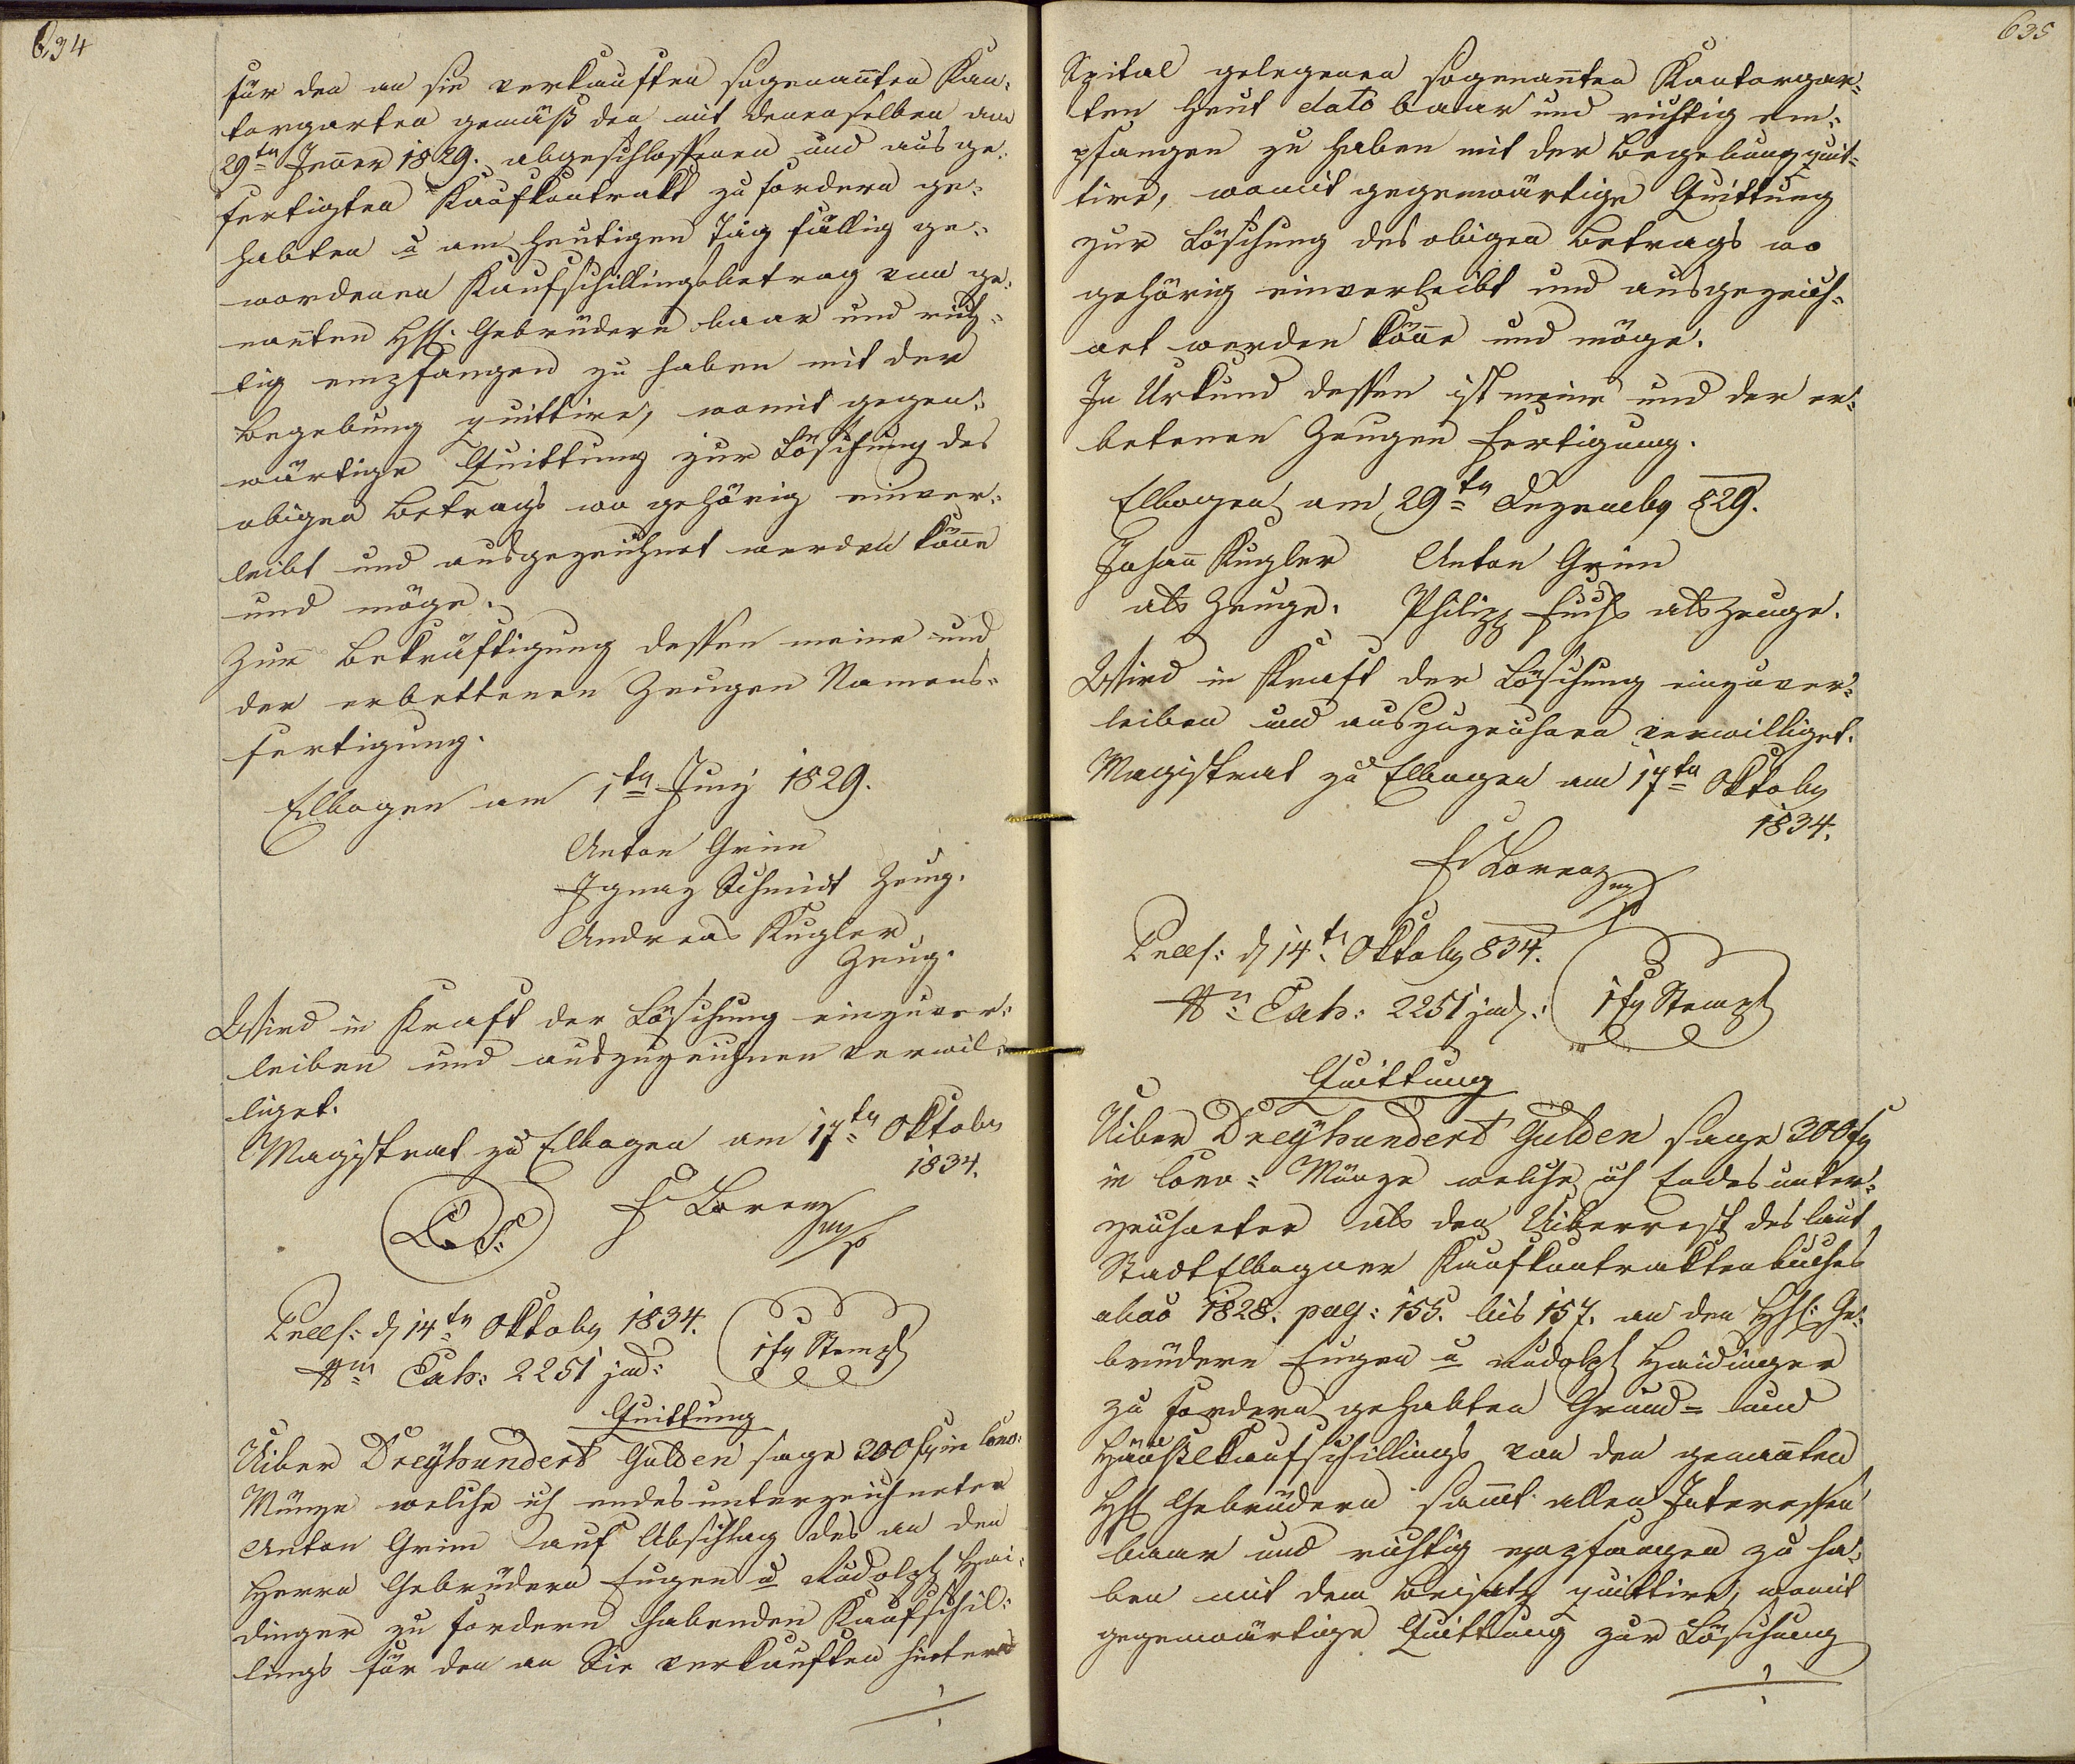 634
für den an sie verkauften sogenan̄ten Kan-
torgarten gemäß den mit denenselben am
29tn Jen̄er 1829. abgeschlossenen und ausge-
fertigten Kaufkontrakt zu fordern ge-
habten u am heutigen Tag fällig ge-
wordenen Kaufschillingsbetrag von ge-
nan̄ten HH. Gebrüdern baar und rich-
tig empfangen zu haben mit der
Begebung quittire, womit gegen-
wärtige Quittung zur Löschung des
obigen Betrags wo gehörig einver-
leibt und ausgezeichnet werden kön̄e
und möge.
Zur Bekräftigung dessen meine und
der erbettenen Zeugen Namens-
fertigung.
Elbogen am 1tn Juny 1829.
Anton Grim
Ignaz Schmidt Zeug.
Andreas Kugler
Zeug.
Wird in Kraft der Löschung einzuver-
leiben und auszuzeichnen verwil-
liget.
Magistrat zu Elbogen am 17tn Oktober
1834.
L. S. Lorenz mp
Praes: d 14tn Oktober 1834.
Exh: 2251 jud: 1 fr Stempl
Quittung
Uiber Dreyhundert Gulden sage 300 fr in Conv:
Münze welche ich endesunterzeichneter
Anton Grim auf Abschlag des an den
Herrn Gebrüdern Eugen u Rudolph Hai-
dinger zu fordern habenden Kaufschil-
lings für den an Sie verkauften hinterm
635
Spital gelegenen sogenan̄ten Kantorgar-
ten heut dato baar und richtig em-
pfangen zu haben mit der Begebung quit-
tire, womit gegenwärtige Quittung
zur Löschung des obigen Betrags wo
gehörig einverleibt und ausgezeich-
net werden kön̄e und möge.
In Urkund dessen ist meine und der er-
betenen Zeugen Fertigung.
Elbogen am 29tn Dezember 829.
Johan̄ Kugler Anton Grim
als Zeuge. Philipp Fuchs als Zeuge.
Wird in Kraft der Löschung einzuver-
leiben und auszuzeichnen verwilliget.
Magistrat zu Elbogen am 17tn Oktober
1834.
Lorenz mp
Praes: d 14tn Oktober 834.
Exh: 2251 jud: 1 fr Stempl
Quittung
Uiber Dreyhundert Gulden sage 300 fr
in Conv: Münze welche ich Endesunter-
zeichneter als den Uiberrest des laut
Stadt Elbogner Kaufkontraktenbuches
1828. pag: 155. bis 157. an den HH: Ge-
brüdern Eugen u Rudolph Haidinger
zu fordern gehabten Grund- und
Häußlkaufschillings von den genan̄ten
HH Gebrüdern sam̄t allen Interessen
baar und richtig empfangen zu ha-
ben mit dem Beisatz quittire, womit
gegenwärtige Quittung zur Löschung